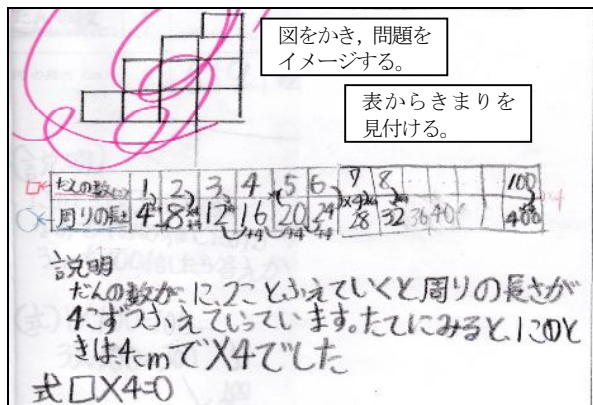 図をかき，問題を
イメージする。
表からきまりを
見付ける。
□ だんの数(だん) 1 2 3 4 5 6 7 8 100
○ 周りの長さ 4 8 12 16 20 24 28 32 36 40 400
×4 ×4 ×4
+4 +4 +4 +4
説明
だんの数が、1こ、2ことふえていくと周りの長さが
4こずつふえていっています。たてにみると、1このと
きは、4cmで×4でした
式 □×4=○